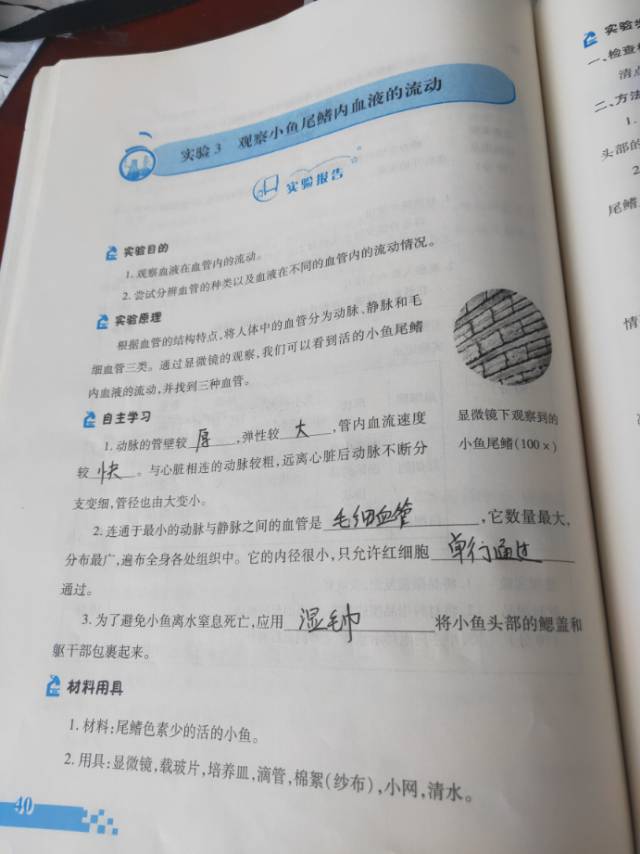 实验3 观察小鱼尾鳍内血液的流动
实验报告
实验目的
1. 观察血液在血管内的流动。
2. 尝试分辨血管的种类以及血液在不同的血管内的流动情况。
实验原理
根据血管的结构特点,将人体中的血管分为动脉、静脉和毛
细血管三类。通过显微镜的观察,我们可以看到活的小鱼尾鳍
内血液的流动,并找到三种血管。
显微镜下观察到的
小鱼尾鳍(100×)
自主学习
1. 动脉的管壁较 厚 ,弹性较 大 ,管内血流速度
较 快 。与心脏相连的动脉较粗,远离心脏后动脉不断分
支变细,管径也由大变小。
2. 连通于最小的动脉与静脉之间的血管是 毛细血管 ,它数量最大,
分布最广,遍布全身各处组织中。它的内径很小,只允许红细胞 单行通过
通过。
3. 为了避免小鱼离水窒息死亡,应用 湿毛巾 将小鱼头部的鳃盖和
躯干部包裹起来。
材料用具
1. 材料:尾鳍色素少的活的小鱼。
2. 用具:显微镜,载玻片,培养皿,滴管,棉絮(纱布),小网,清水。
40
一、检查
清点
二、方法
1.
头部的
2
尾鳍
情